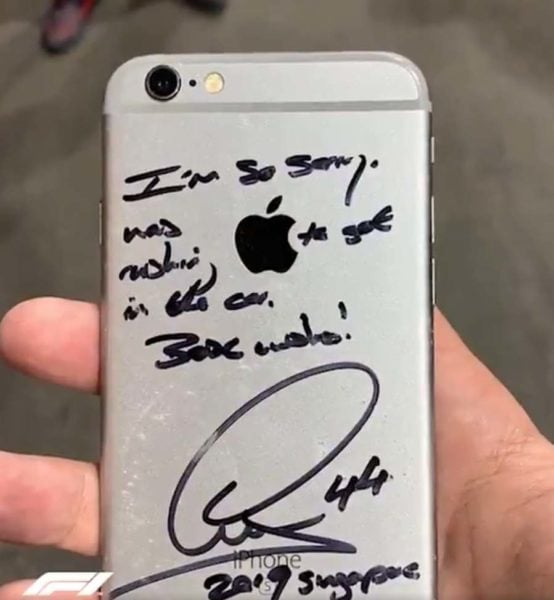 I'm so sorry.
was to get
rushing
in the car.
Best wishes!
44
iPhone
S
2019 Singapore
F1